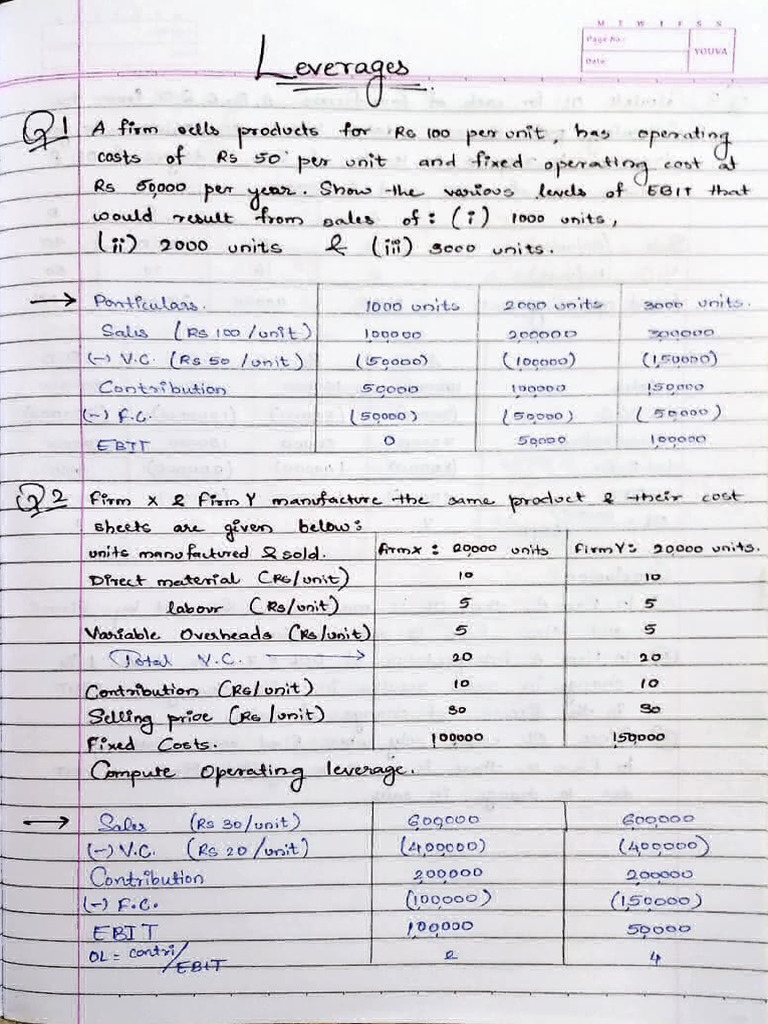 M T W T F S S
Page No.:
Date:
YOUVA
Leverages
Q1 A firm sells products for Rs 100 per unit, has operating
costs of Rs 50 per unit and fixed operating cost at
Rs 50,000 per year. Show the various levels of EBIT that
would result from sales of: (i) 1000 units,
(ii) 2000 units & (iii) 3000 units.
→ Particulars. 1000 units 2000 units 3000 units.
Sales (Rs 100/unit) 100000 200000 300000
(-) V.C. (Rs 50/unit) (50000) (100000) (1,50000)
Contribution 50000 100000 150000
(-) F.C. (50000) (50000) (50000)
EBIT 0 50000 100000
Q2 Firm X & Firm Y manufacture the same product & their cost
sheets are given below:
units manufactured & sold. Firm X: 20,000 units Firm Y: 20000 units.
Direct material (Rs/unit) 10 10
labour (Rs/unit) 5 5
Variable Overheads (Rs/unit) 5 5
Total V.C. → 20 20
Contribution (Rs/unit) 10 10
Selling price (Rs/unit) 30 30
Fixed Costs. 100000 1,50000
Compute Operating leverage.
→ Sales (Rs 30/unit) 600000 600000
(-) V.C. (Rs 20/unit) (400000) (400000)
Contribution 200000 200000
(-) F.C. (100000) (1,50000)
EBIT 100000 50000
OL = Contri/EBIT 2 4